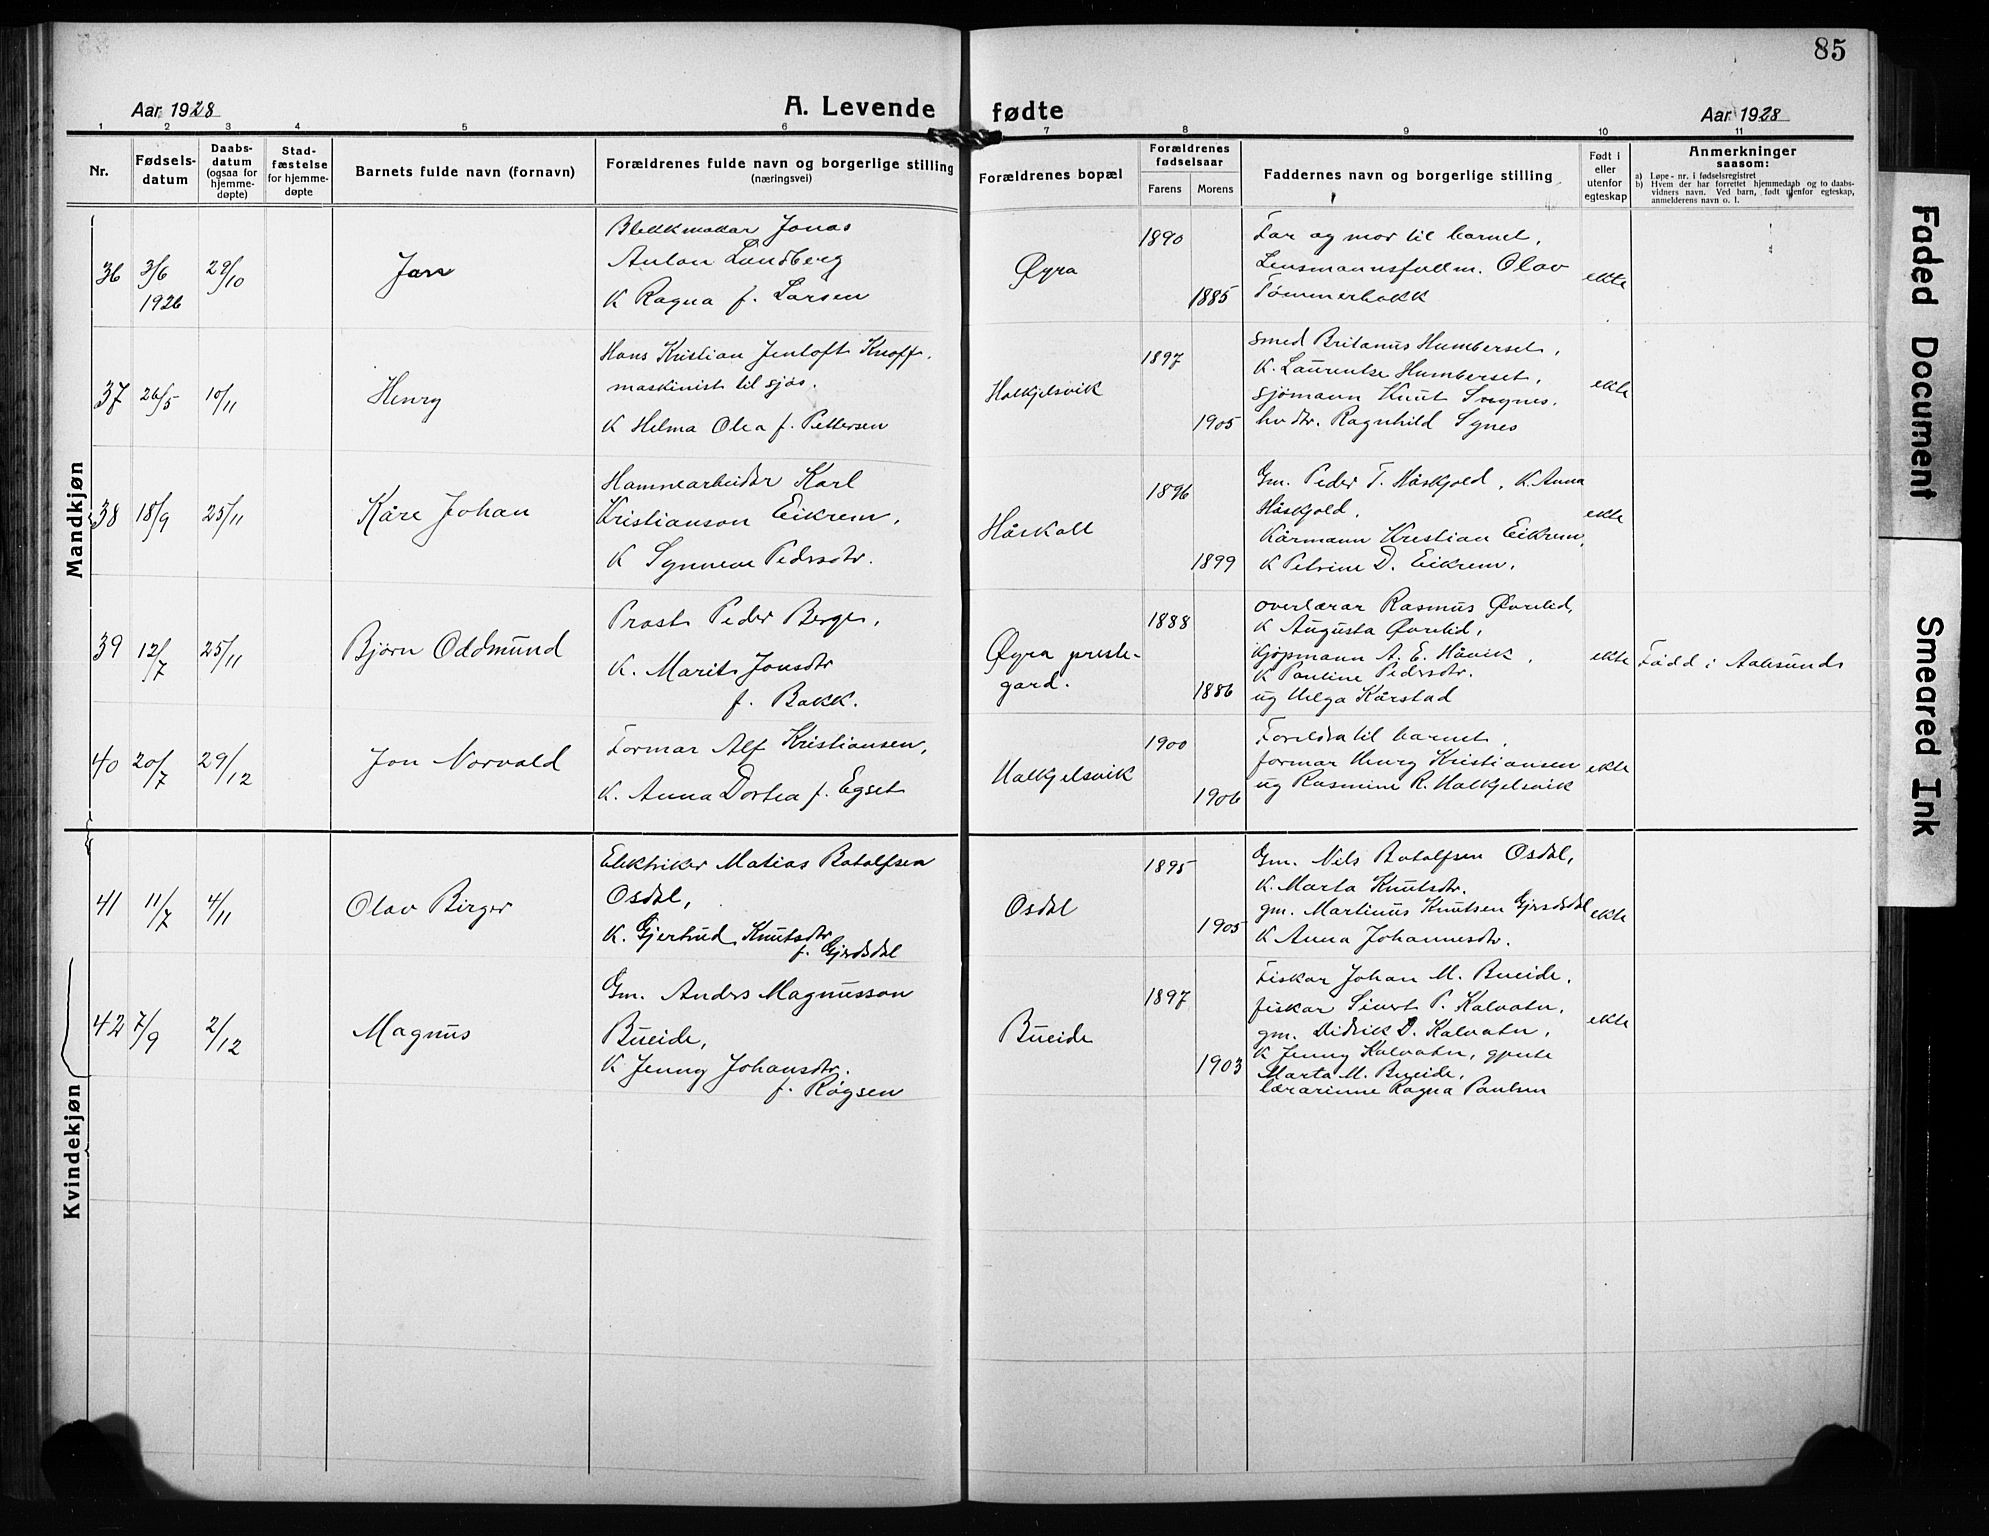 85
Aar 1928 A. Levende fødte Aar 1928
1 2 3 4 5 6 7 8 9 10 11
Nr. Fødsels-datum Daabs-datum (ogsaa for hjemme-døpte) Stad-fæstelse for hjemme-døpte Barnets fulde navn (fornavn) Forældrenes fulde navn og borgerlige stilling (næringsvei) Forældrenes bopæl Forældrenes fødselsaar Farens Morens Faddernes navn og borgerlige stilling Født i eller utenfor egteskap Anmerkninger saasom:
a) Løpe-nr. i fødselsregistret
b) Hvem der har forrettet hjemmedaab og to daabs-
vidners navn. Ved barn, født utenfor egteskap,
anmelderens navn o. l.
Mandkjøn
36 3/6 1926 29/10 Jan
Blekkmakar Jonas
Anton Lundberg
K Ragna f. Larsen
Øyra 1890 1885
Far og mor til barnet,
Lensmannsfullm. Olav
Tømmerbakk
ekte
37 26/5 10/11 Henry
Hans Kristian Jentoft Knoff,
maskinist til sjøs.
K Helma Olea f. Pettersen
Halkjelsvik 1897 1905
smed Britanus Humberset,
K. Laurentse Humberset,
sjømann Knut Sygnes,
hvdtr. Ragnhild Sygnes
ekte
38 18/9 25/11 Kåre Johan
Hamnearbeidar Karl
Kristianson Eikrem,
K Synneve Pedersdtr.
Håskoll 1896 1899
Gm. Peder T. Håskjold, K. Anna
Håskjold,
Kårmann Kristian Eikrem,
K Petrine D. Eikrem.
ekte
39 12/7 25/11 Bjørn Oddmund
Prost Peder Berge,
K. Marit Jonsdtr
f. Bakk.
Øyra preste-
gard. 1888 1886
overlærar Rasmus Øvrelid,
K Augusta Øvrelid,
kjøpmann A. E. Håvik,
K Pauline Pedersdtr.
ug Helga Kårstad
ekte Fødd i Aalesund
40 20/7 29/12 Jon Norvald
Formar Alf Kristiansen,
K. Anna Dortea f. Egset
Halkjelsvik 1900 1906
Foreldra til barnet,
formar Henry Kristiansen
ug Rasmine R. Halkjelsvik
ekte
Kvindekjøn
41 11/7 4/11 Olav Birger
Elektriker Matias Botolfsen
Osdal,
K. Gjertrud Knutsdtr
f. Gjerdsdal
Osdal 1895 1905
Gm. Nils Botolfsen Osdal,
K. Marta Knutsdtr.
gm. Martinus Knutsen Gjerdsdal
K Anna Johannesdtr.
ekte
42 7/9 2/12 Magnus
Gm. Anders Magnusson
Bueide,
K Jenny Johansdtr.
f. Røysen
Bueide 1897 1903
Fiskar Johan M. Bueide,
fiskar Sivert P. Kalvatn,
gm. Didrik D. Kalvatn,
K Jenny Kalvatn, gjente
Marta M. Bueide,
lærarinne Ragna Paulsen
ekte
Faded Document
Smeared Ink